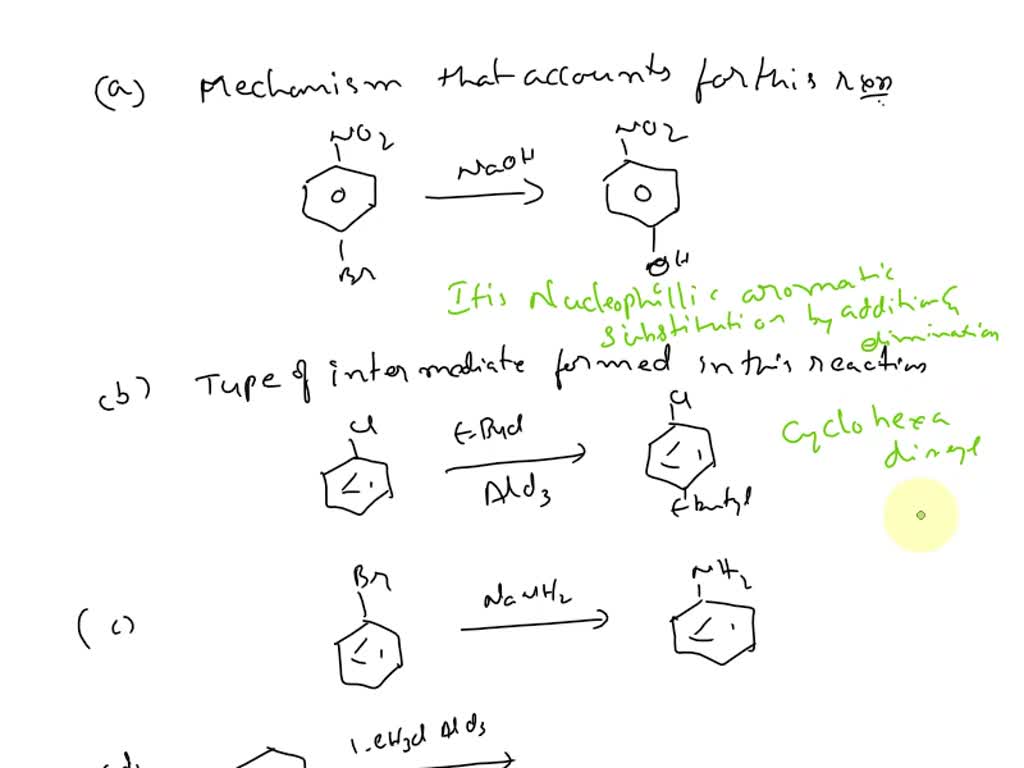 (a) Mechanism that accounts for this rxn
NO2 NO2
NaOH
Br OH
It is Nucleophillic aromatic
substitution by addition &
elimination
(b) Type of intermediate formed in this reaction
Cl Cl
t-BuCl
AlCl3
t-butyl
Cyclohexa
dienyl
(c)
Br NH2
NaNH2
1. CH3Cl AlCl3